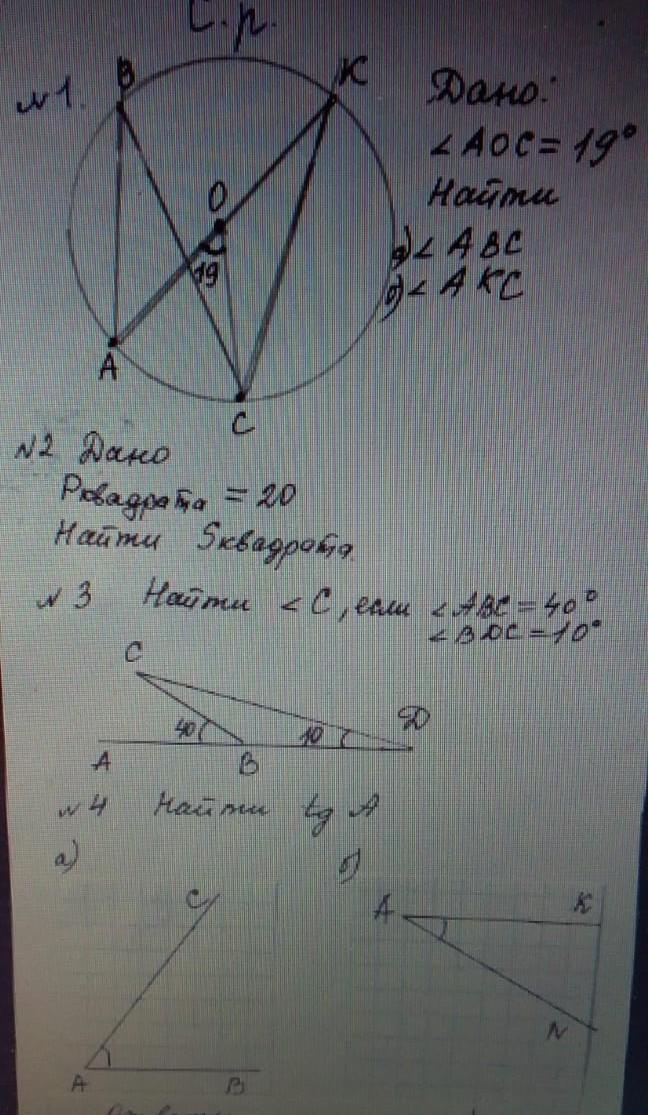 С.р.
№1.
B
K
O
19
A
C
Дано:
∠AOC = 19°
Найти
а) ∠ABC
б) ∠AKC
№2 Дано
Pквадрата = 20
Найти Sквадрата.
№3 Найти ∠C, если ∠ABC = 40°
∠BDC = 10°
C
40
10
D
A
B
№4 Найти tg A
а)
б)
C
A
B
A
K
N